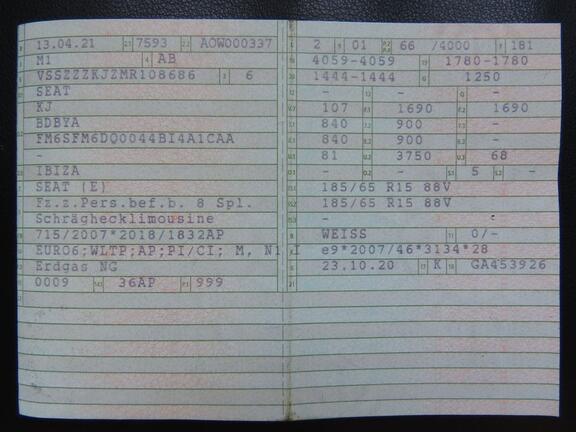 13.04.21 7593 AOW000337
M1 AB
VSSZZZKJZMR108686 6
SEAT
KJ
BDBYA
FM6SFM6DQ0044BI4A1CAA
-
IBIZA
SEAT (E)
Fz.z.Pers.bef.b. 8 Spl.
Schräghecklimousine
715/2007*2018/1832AP
EURO6;WLTP;AP;PI/CI; M, N1 I
Erdgas NG
0009 36AP 999
2 01 66 /4000 181
4059-4059 1780-1780
1444-1444 1250
- - -
107 1690 1690
840 900 -
840 900 -
81 3750 68
- - 5 -
185/65 R15 88V
185/65 R15 88V
-
WEISS 0/-
e9*2007/46*3134*28
23.10.20 K GA453926